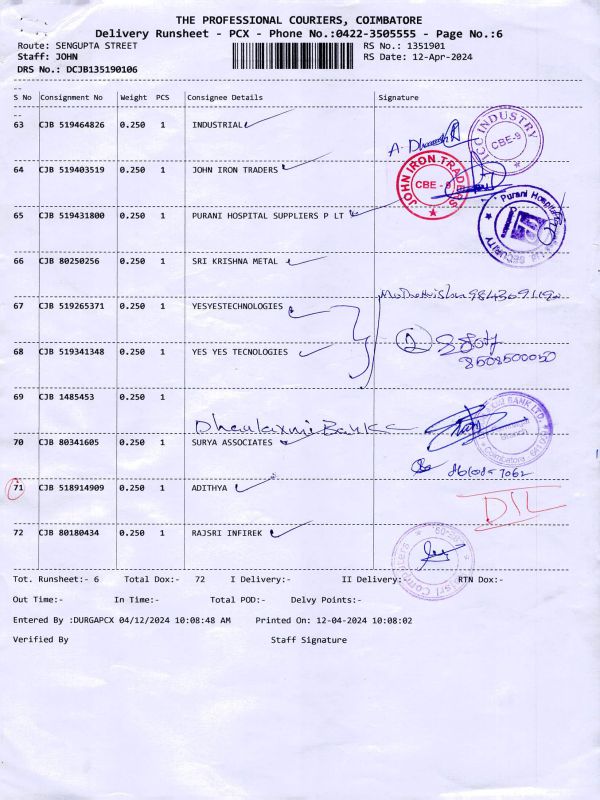 THE PROFESSIONAL COURIERS, COIMBATORE
Delivery Runsheet - PCX - Phone No.:0422-3505555 - Page No.:6
Route: SENGUPTA STREET RS No.: 1351901
Staff: JOHN RS Date: 12-Apr-2024
DRS No.: DCJB135190106
--
S No Consignment No Weight PCS Consignee Details Signature
--
63 CJB 519464826 0.250 1 INDUSTRIAL
INDUSTRY CBE-9
64 CJB 519403519 0.250 1 JOHN IRON TRADERS
JOHN IRON TRADERS CBE - 9
65 CJB 519431800 0.250 1 PURANI HOSPITAL SUPPLIERS P LT
Purani Hospital SECURITY
66 CJB 80250256 0.250 1 SRI KRISHNA METAL
67 CJB 519265371 0.250 1 YESYESTECHNOLOGIES
68 CJB 519341348 0.250 1 YES YES TECNOLOGIES
2
8508500050
69 CJB 1485453 0.250 1
Dhanlaxmi Bank
BANK LTD. Coimbatore
70 CJB 80341605 0.250 1 SURYA ASSOCIATES
71 CJB 518914909 0.250 1 ADITHYA
DIL
72 CJB 80180434 0.250 1 RAJSRI INFIREK
Tot. Runsheet:- 6 Total Dox:- 72 I Delivery:- II Delivery:- RTN Dox:-
Out Time:- In Time:- Total POD:- Delvy Points:-
Entered By :DURGAPCX 04/12/2024 10:08:48 AM Printed On: 12-04-2024 10:08:02
Verified By Staff Signature